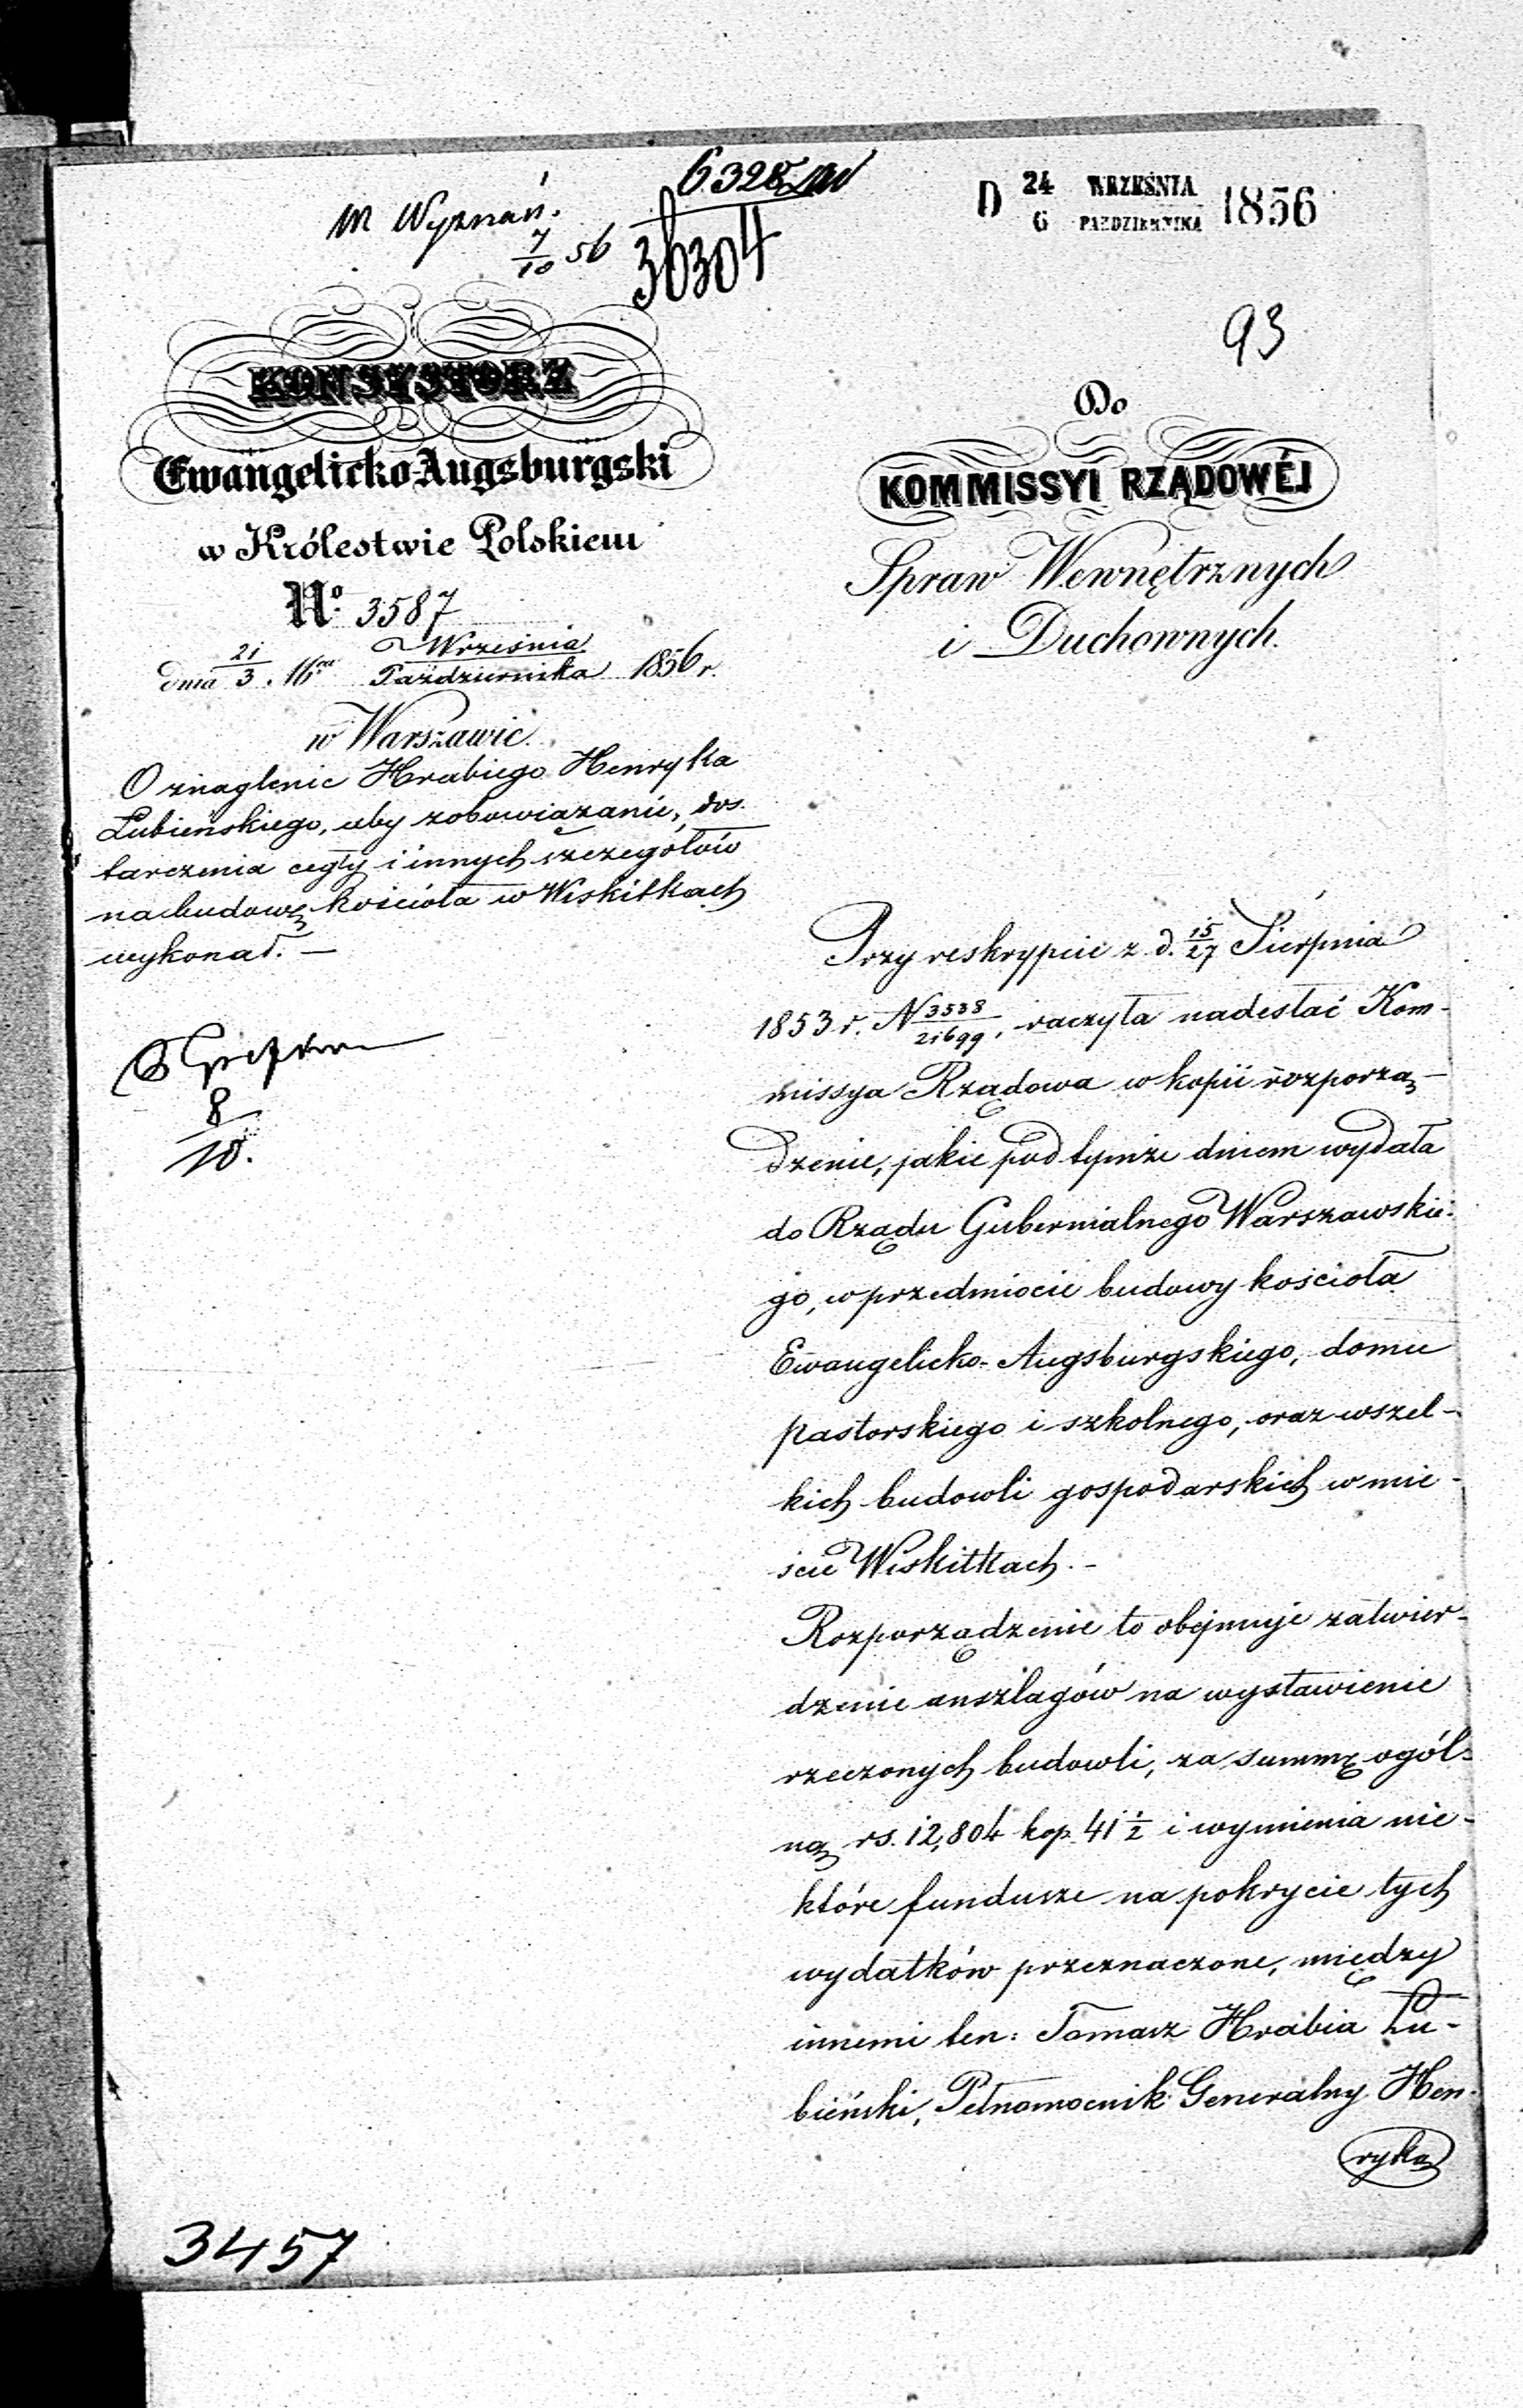 W Wyznań.
7/10 56
6328
36304
D 24 WRZEŚNIA
6 PAZDZIERNIKA 1856
93
KONSYSTORZ
Ewangelicko-Augsburgski
w Królestwie Polskiem
No. 3587
dnia 21/3 Września/Października 1856 r.
w Warszawie.
O znaglenie Hrabiego Henryka
Łubieńskiego, aby zobowiązanie, dos-
tarczenia cegły i innych szczegółów
na budowę kościoła w Wiskitkach
wykonał. —
8/10.
Do
KOMMISSYI RZĄDOWÉJ
Spraw Wewnętrznych
i Duchownych.
Przy reskrypcie z d. 15/27 Sierpnia
1853 r. N 3538/21699, raczyła nadesłać Kom-
missya Rządowa w kopii rozporzą-
dzenie, jakie pod tymże dniem wydała
do Rządu Gubernialnego Warszawskie-
go, w przedmiocie budowy kościoła
Ewangelicko-Augsburgskiego, domu
pastorskiego i szkolnego, oraz wszel-
kich budowli gospodarskich w mie-
ście Wiskitkach. -
Rozporządzenie to obejmuje zatwier-
dzenie anszlagów na wystawienie
rzeczonych budowli, za summę ogól-
ną rs. 12,804 kop. 41 1/2 i wymienia nie-
które fundusze na pokrycie tych
wydatków przeznaczone, między
innemi ten: Tomasz Hrabia Łu-
bieński, Pełnomocnik Generalny Hen-
ryka
3457